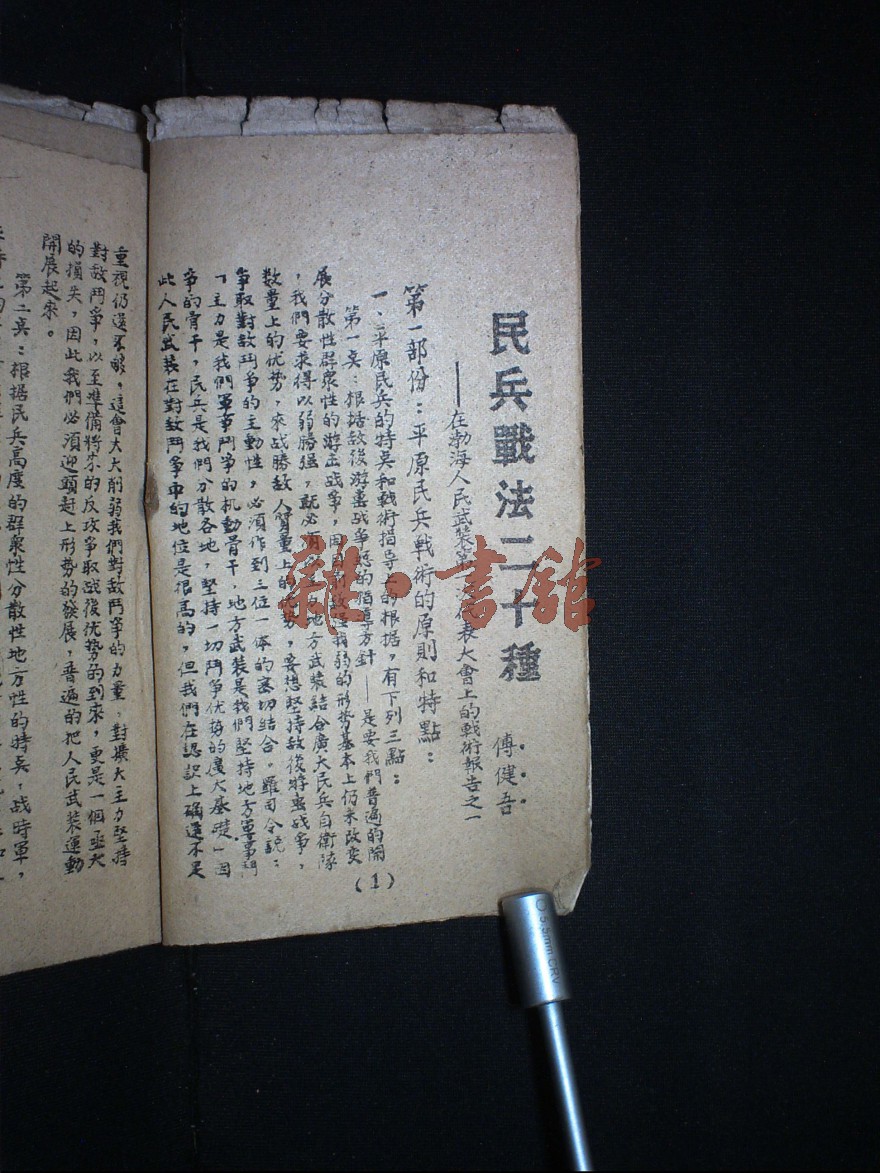 民兵戰法二十種
傅健吾
——在渤海人民武裝
代表大會上的戰術報告之一
第一部份：平原民兵戰術的原則和特點：
一、平原民兵的特奌和戰術指导上的根据，有下列三點：
第一奌：根据敌後游击战争
的指導方針——是要我們普遍的開
展分散性群眾性的游击战争，因目前敌强我弱的形势基本上仍未改变
，我們要求得以弱勝强，就必須
地方武裝結合廣大民兵自衛隊
数量上的优势，來战勝敌人質量上的优势，要想堅持敌後游击战争，
争取對敌鬥争的主動性，必須作到三位一体的密切結合。羅司令說：
「主力是我們軍事鬥争的机動骨干，地方武裝是我們堅持地方軍事鬥
争的骨干，民兵是我們分散各地，堅持一切鬥争优势的廣大基礎」因
此人民武装在對敌鬥争中的地位是很高的，但我們在認識上确還不足
（1）
重視仍還不够，這會大大削弱我們對敌鬥争的力量，對擴大主力堅持
對敌鬥争，以至準備將來的反攻争取战後优势的到來，更是一個巫大
的損失，因此我們必須迎頭赶上形势的發展，普遍的把人民武装運動
開展起來。
第二奌：根据民兵高度的群眾性分散性地方性的特奌，战時軍，
雜·書館
0.5mm CRV